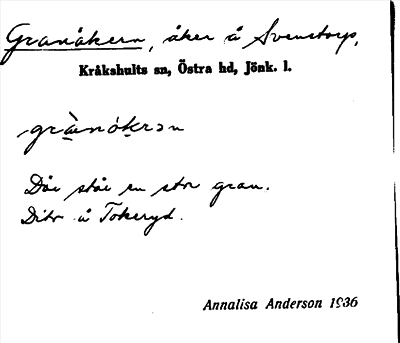 Granåkern, åker å Svenstorp,
Kråkshults sn, Östra hd, Jönk. l.
grànókrən
Där står en stor gran.
Dito å Tokeryd.
Annalisa Anderson 1936